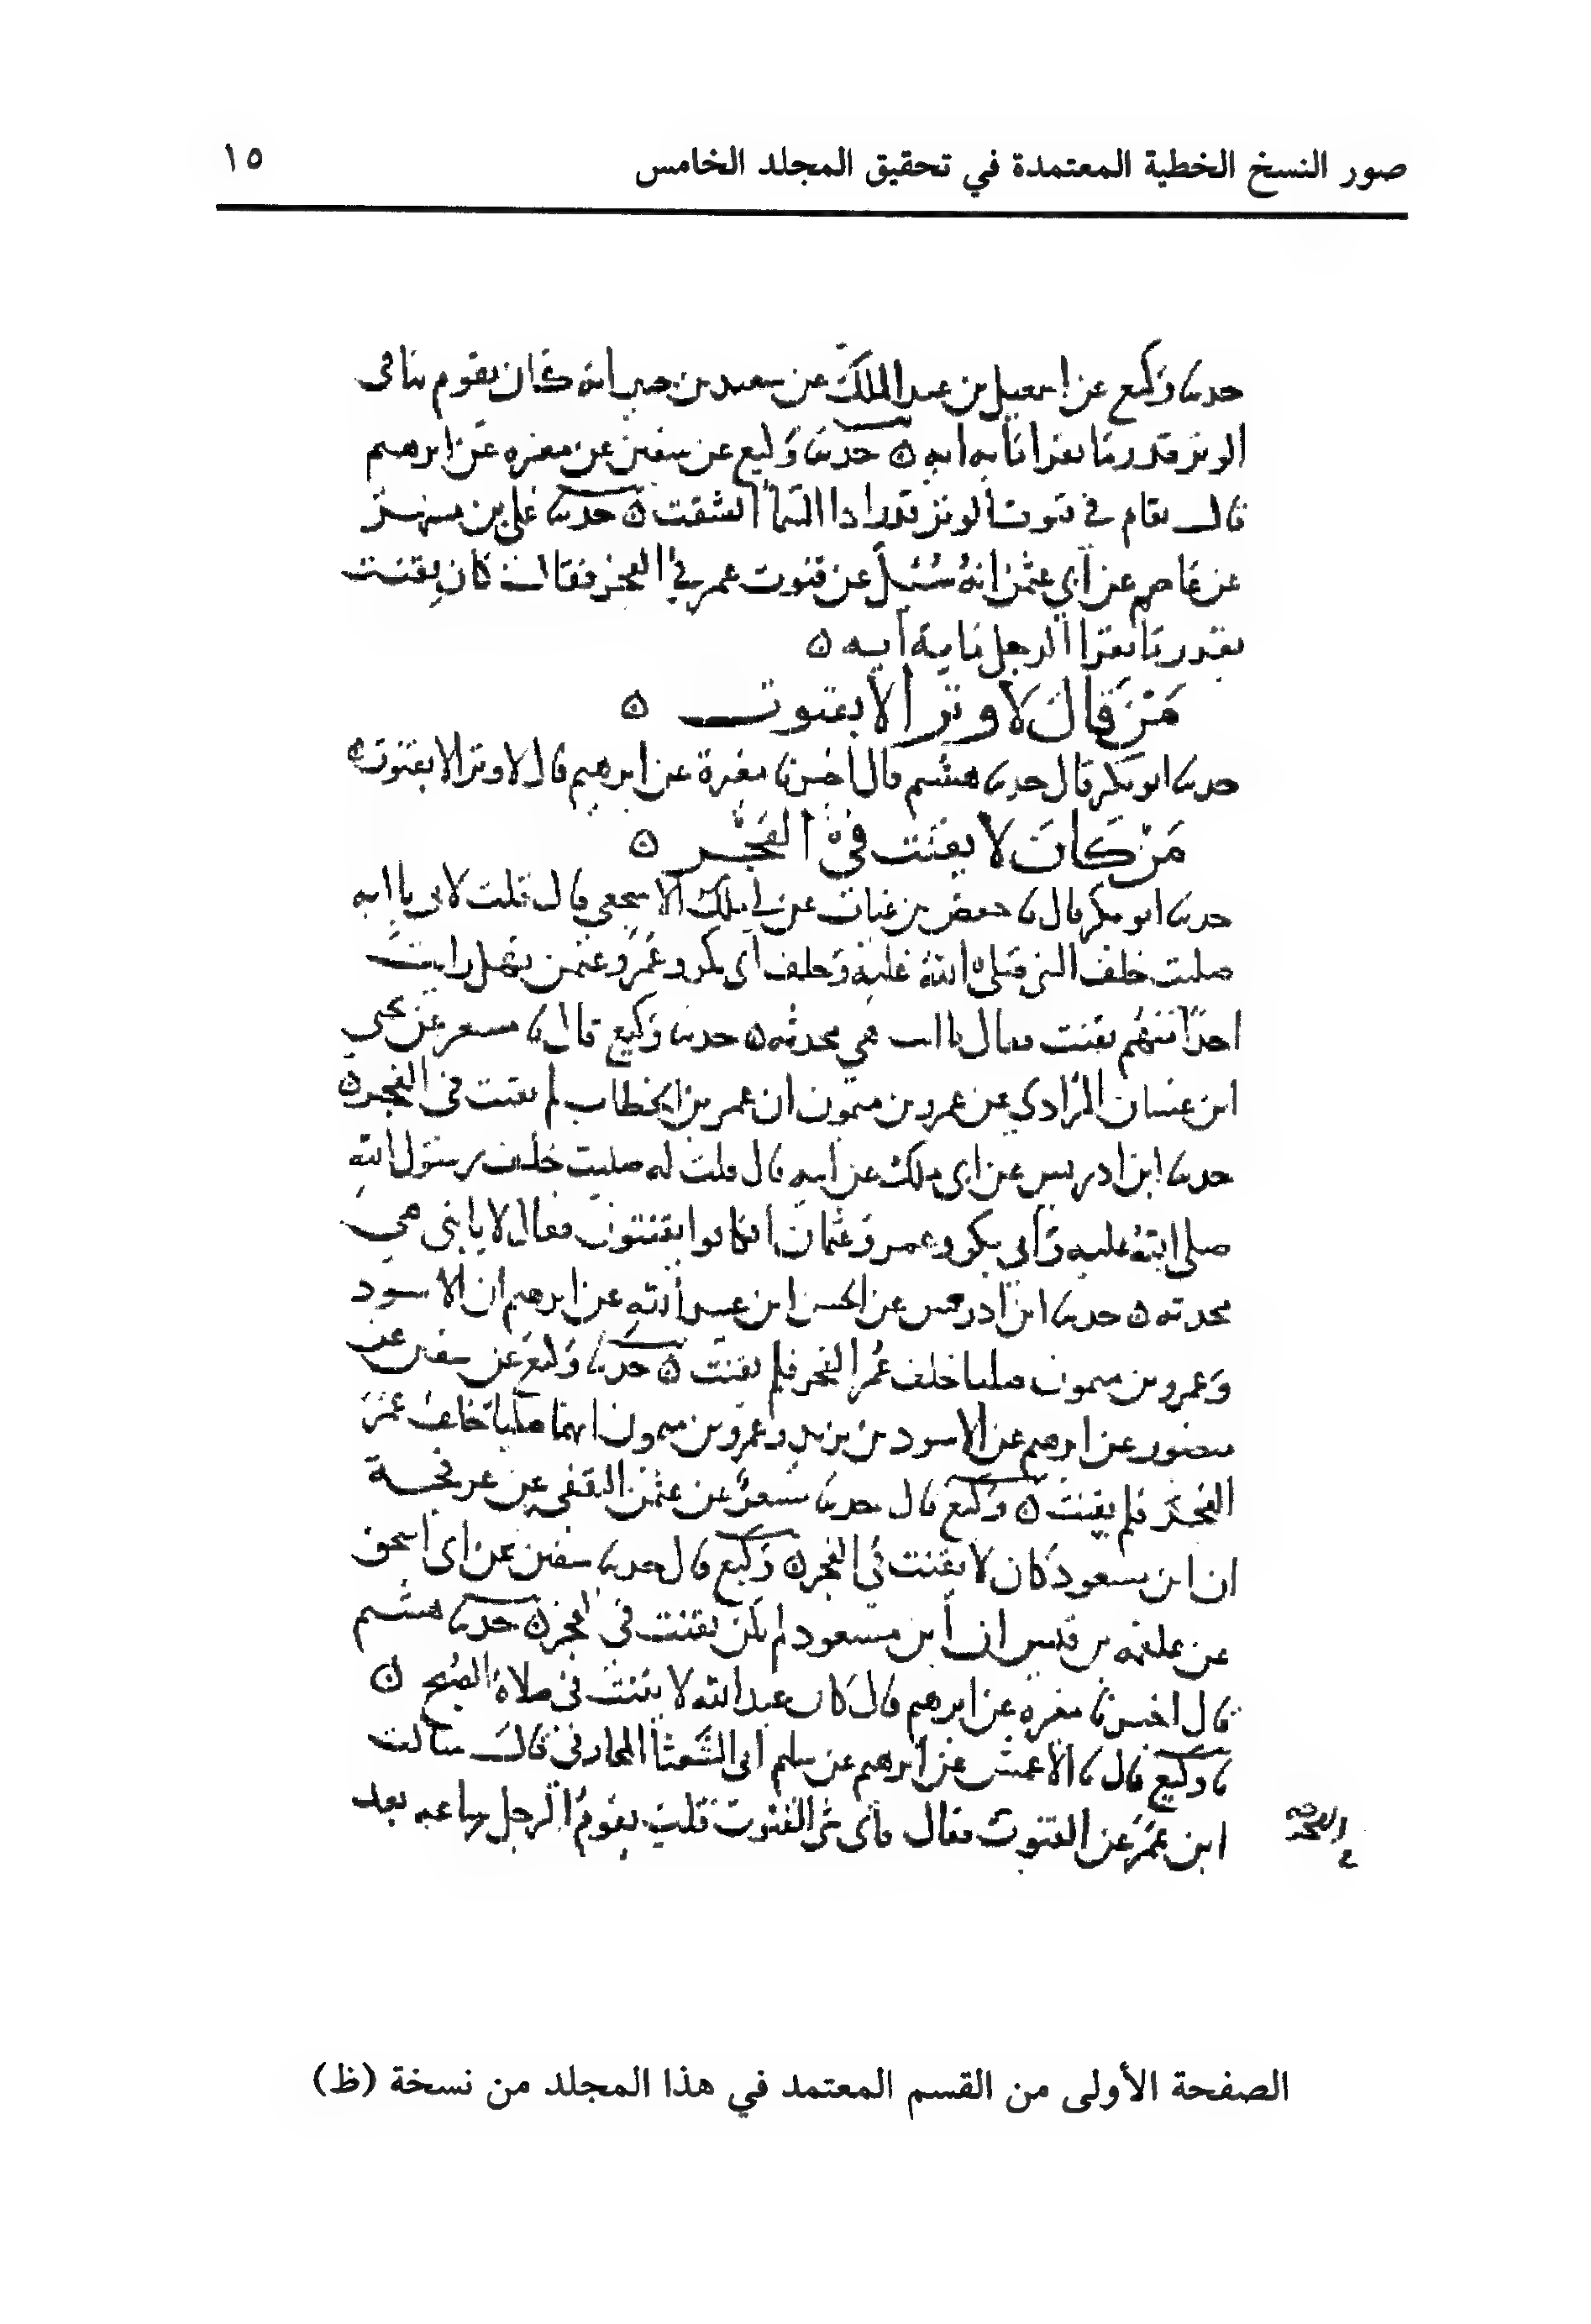 صور النسخ الخطية المعتمدة في تحقيق المجلد الخامس
١٥
حدثنا وكيع عن اسمعيل بن عبد الملك عن سعيد بن جبير انه كان يقوم في
الوتر قدر ما يقرأ مائة اية ۞ حدثنا وكيع عن سفين عن مغيرة عن ابرهيم
قال يقام في قنوت الوتر قدر اذا السماء انشقت ۞ حدثنا علي بن مسهر
عن عاصم عن أبي عثمن انه سُئل عن قنوت عمر في الفجر فقال كان يقنت
بقدر ما يقرأ الرجل مائة أية ۞
مَنْ قال لا وتر الا بقنوت ۞
حدثنا ابو بكر قال حدثنا هشيم قال أخبرنا مغيرة عن ابرهيم قال لا وتر الا بقنوت ۞
مَنْ كَانَ لا يقنت في الفَجْر ۞
حدثنا ابو بكر قال نا حفص بن غياث عن أبي ملك الاشجعي قال قلت لابي يا ابه
صليت خلف النبي صلى الله عليه وخلف أبي بكر وعمر وعثمن فهل رايت
احدًا منهم يقنت فقال يا هي محدثة ۞ حدثنا وكيع قال نا مسعر عن يحيى
ابن غسان المرادي عن عمرو بن ميمون ان عمر بن الخطاب لم يقنت في الفجر ۞
حدثنا ابن ادريس عن ابي ملك عن أبيه قال قلت له صليت خلف رسول الله
صلى الله عليه وأبي بكر وعمر وعثمان أفكانوا يقنتون فقال لا يا بني هي
محدثة ۞ حدثنا ابن ادريس عن الحسن ابن عبيد الله عن ابرهيم ان الاسود
وعمرو بن ميمون صليا خلف عُمر الفجر فلم يقنت ۞ حدثنا وكيع عن سفين عن
منصور عن ابرهيم عن الاسود بن يزيد وعمرو بن ميمون انهما صليا خلف عمر
الفجر فلم يقنت ۞ وكيع قال حدثنا مسعر عن عثمن الثقفي عن عرفجة
ان ابن مسعود كان لا يقنت في الفجر ۞ وكيع قال حدثنا سفين عن ابي اسحق
عن علقمه بن قيس ان أبن مسعود لم يكن يقنت في الفجر ۞ حدثنا هشيم
قال اخبرنا مغيره عن ابرهيم قال كان عبد الله لا يقنت في صلاة الصبح ۞
نا وكيع قال نا الاعمش عن أبرهيم عن سليم أبي الشعثا المحاربي قال سالت
ابن عُمَر عن القنوت فقال فأي شي القنوت قلت يقوم الرجل ساعه بعد
الصفحة الأولى من القسم المعتمد في هذا المجلد من نسخة (ظ)